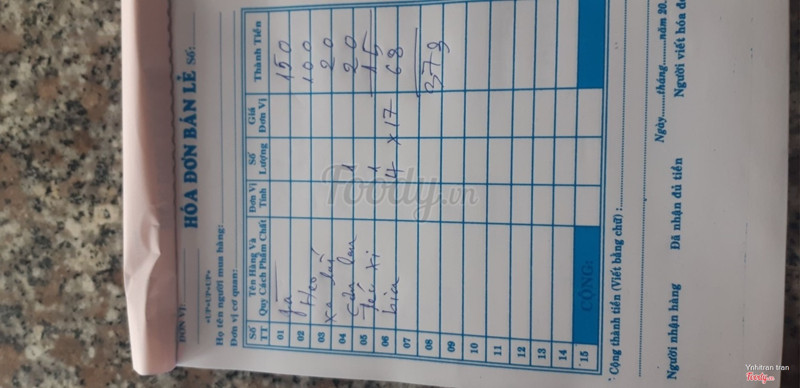 ĐƠN VỊ:
•UP•UP•UP•
HÓA ĐƠN BÁN LẺ Số:
Họ tên người mua hàng:
Đơn vị cơ quan:
Số TT Tên Hàng Và Quy Cách Phẩm Chất Đơn Vị Tính Số Lượng Giá Đơn Vị Thành Tiền
01 150
02 Heo 100
03 20
04 1 20
05 15
06 bia 4 x 17 68
07
08 373
09
10
11
12
13
14
15 CỘNG:
Cộng thành tiền (Viết bằng chữ) :
Ngày tháng năm 20
Người nhận hàng Đã nhận đủ tiền Người viết hóa đơ
Foody.vn
Ynhitran tran
Foody.vn